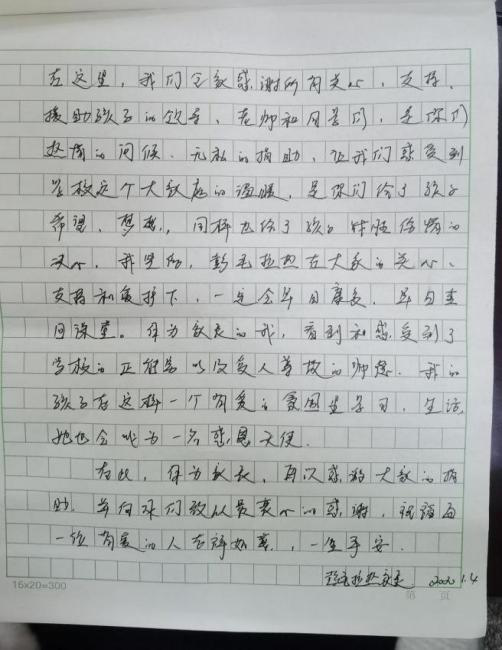 在这里，我们全家感谢所有关心、支持、
援助孩子的领导、老师和同学们，是你们
热情的问候、无私的捐助，让我们感受到
学校这个大家庭的温暖，是你们给了孩子
希望、梦想，同样也给了孩子战胜病痛的
决心，我坚信，彭毛拉热在大家的关心、
支持和爱护下，一定会早日康复，早日重
回课堂。作为家长的我，看到和感受到了
学校的正能量以及受人尊敬的师德，我的
孩子在这样一个有爱的氛围里学习、生活，
她也会成为一名感恩天使。
在此，作为家长，再次感谢大家的捐
助，并向你们致以最衷心的感谢，祝福每
一位有爱的人吉祥如意，一生平安。
拉热家长 1.4
15×20=300
第 页